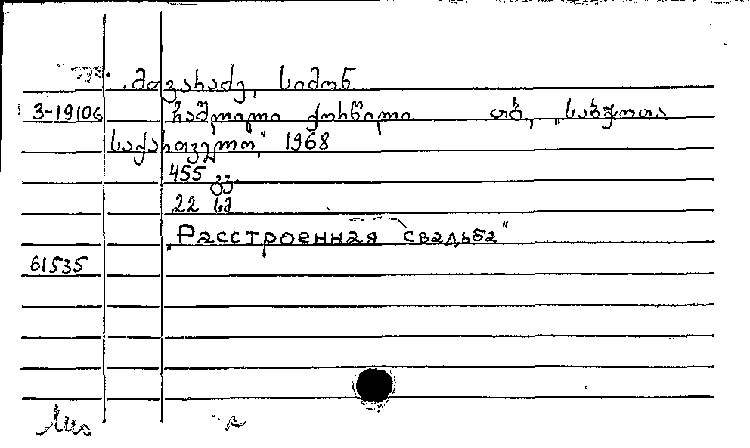 მთვარაძე, სიმონ
3-19106 ჩაშლილი ქორწილი თბ, „საბჭოთა
საქართველო“, 1968
455 გვ.
22 სმ
„Расстроенная свадьба“
61535